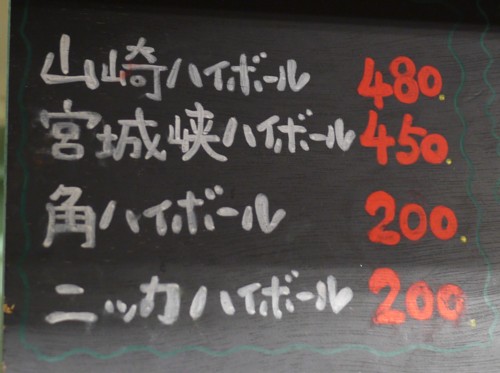 山崎ハイボール 480.
宮城峡ハイボール 450.
角ハイボール 200.
ニッカハイボール 200.